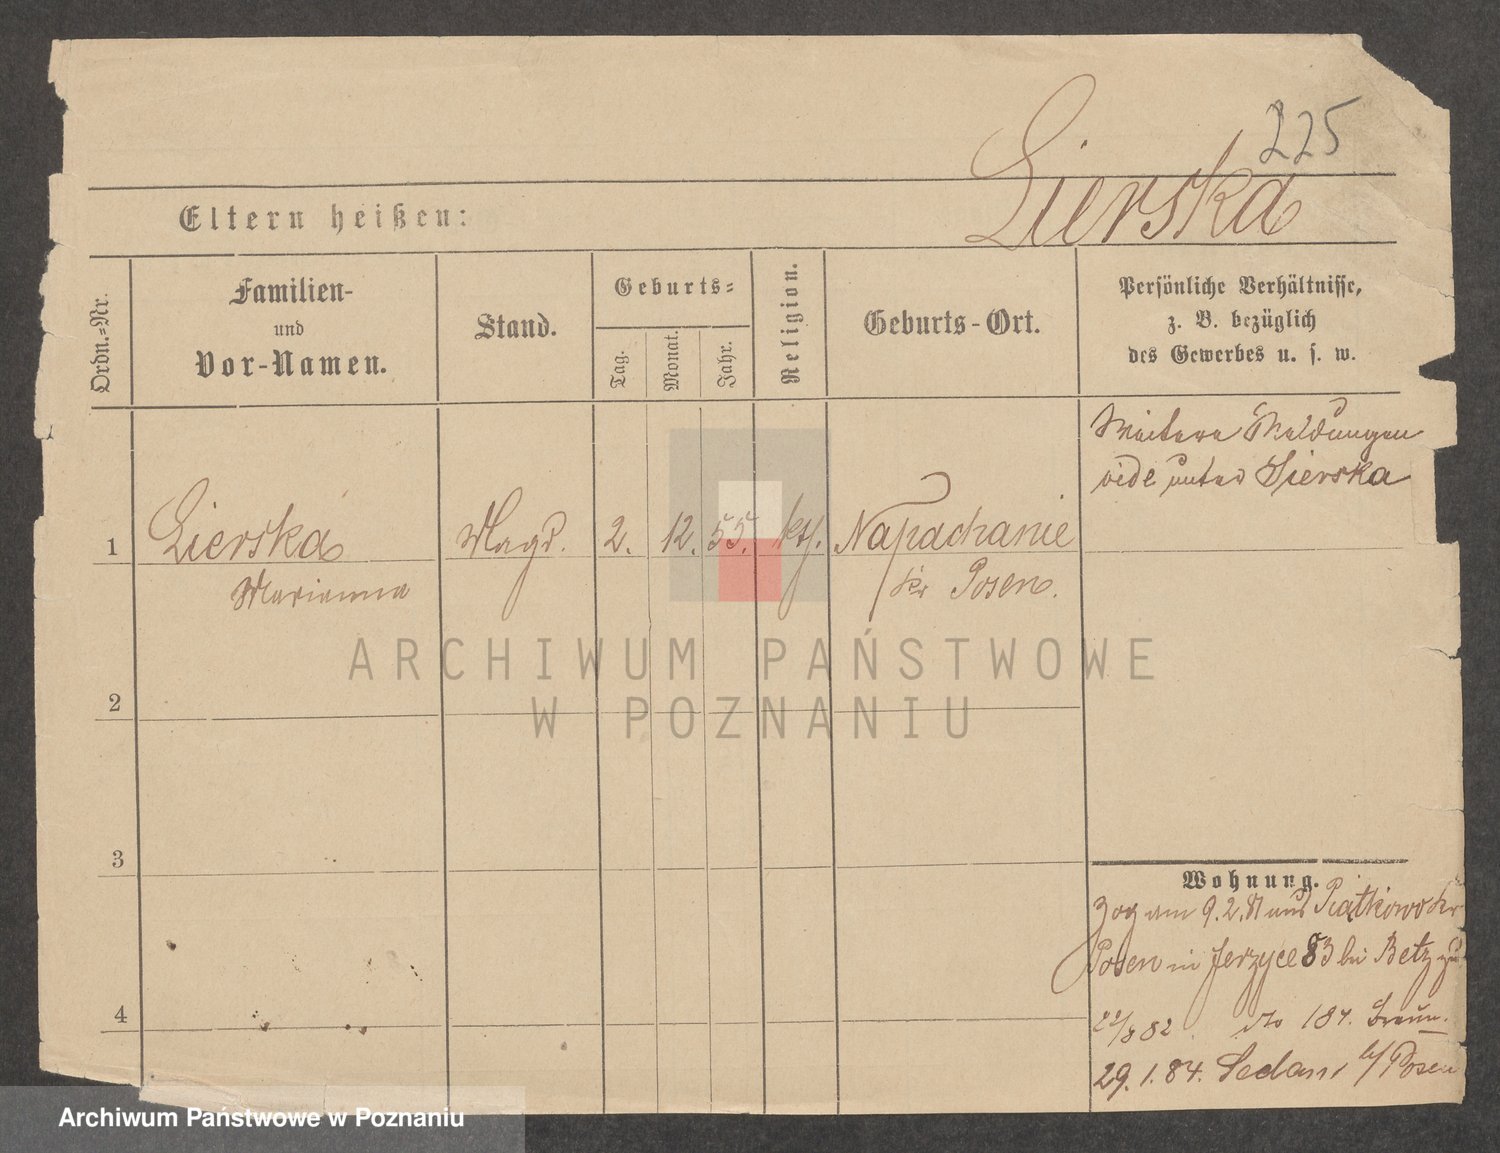 225
Lierska
Eltern heißen:
Ordn.=Nr.
Familien-
und
Vor-Namen.
Stand.
Geburts=
Tag.
Monat.
Jahr.
Religion.
Geburts-Ort.
Persönliche Verhältnisse,
z. B. bezüglich
des Gewerbes u. s. w.
Weitere Meldungen
vide unter Sierska
1 Lierska Magd. 2. 12. 55. kth. Napachanie
Marianna Kr Posen.
2
3
4
Wohnung.
Zog am 9.2.81 aus Piątkowo Kr
Posen in Jerzyce 83 bei Betz zu
22/8 82 do 187. Braun.
29.1.84. Sedan b/Posen
ARCHIWUM PAŃSTWOWE
W POZNANIU
Archiwum Państwowe w Poznaniu